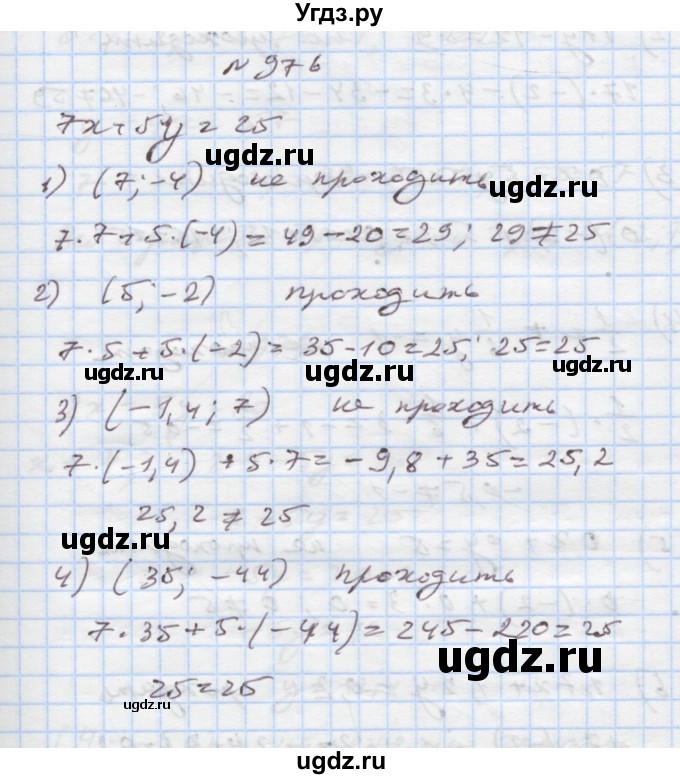 Угдз.ру
№ 976
7x + 5y = 25
ugdz.ru
1) (7; -4) не проходить
ugdz.ru
7·7 + 5·(-4) = 49 - 20 = 29; 29 ≠ 25
2) (5; -2) проходить
7·5 + 5·(-2) = 35 - 10 = 25; 25 = 25
ugdz.ru ugdz.ru ugdz.ru
3) (-1,4; 7) не проходить
7·(-1,4) + 5·7 = -9,8 + 35 = 25,2
25,2 ≠ 25
ugdz.ru
4) (35; -44) проходить
7·35 + 5·(-44) = 245 - 220 = 25
ugdz.ru
25 = 25
ugdz.ru
ugdz.ru